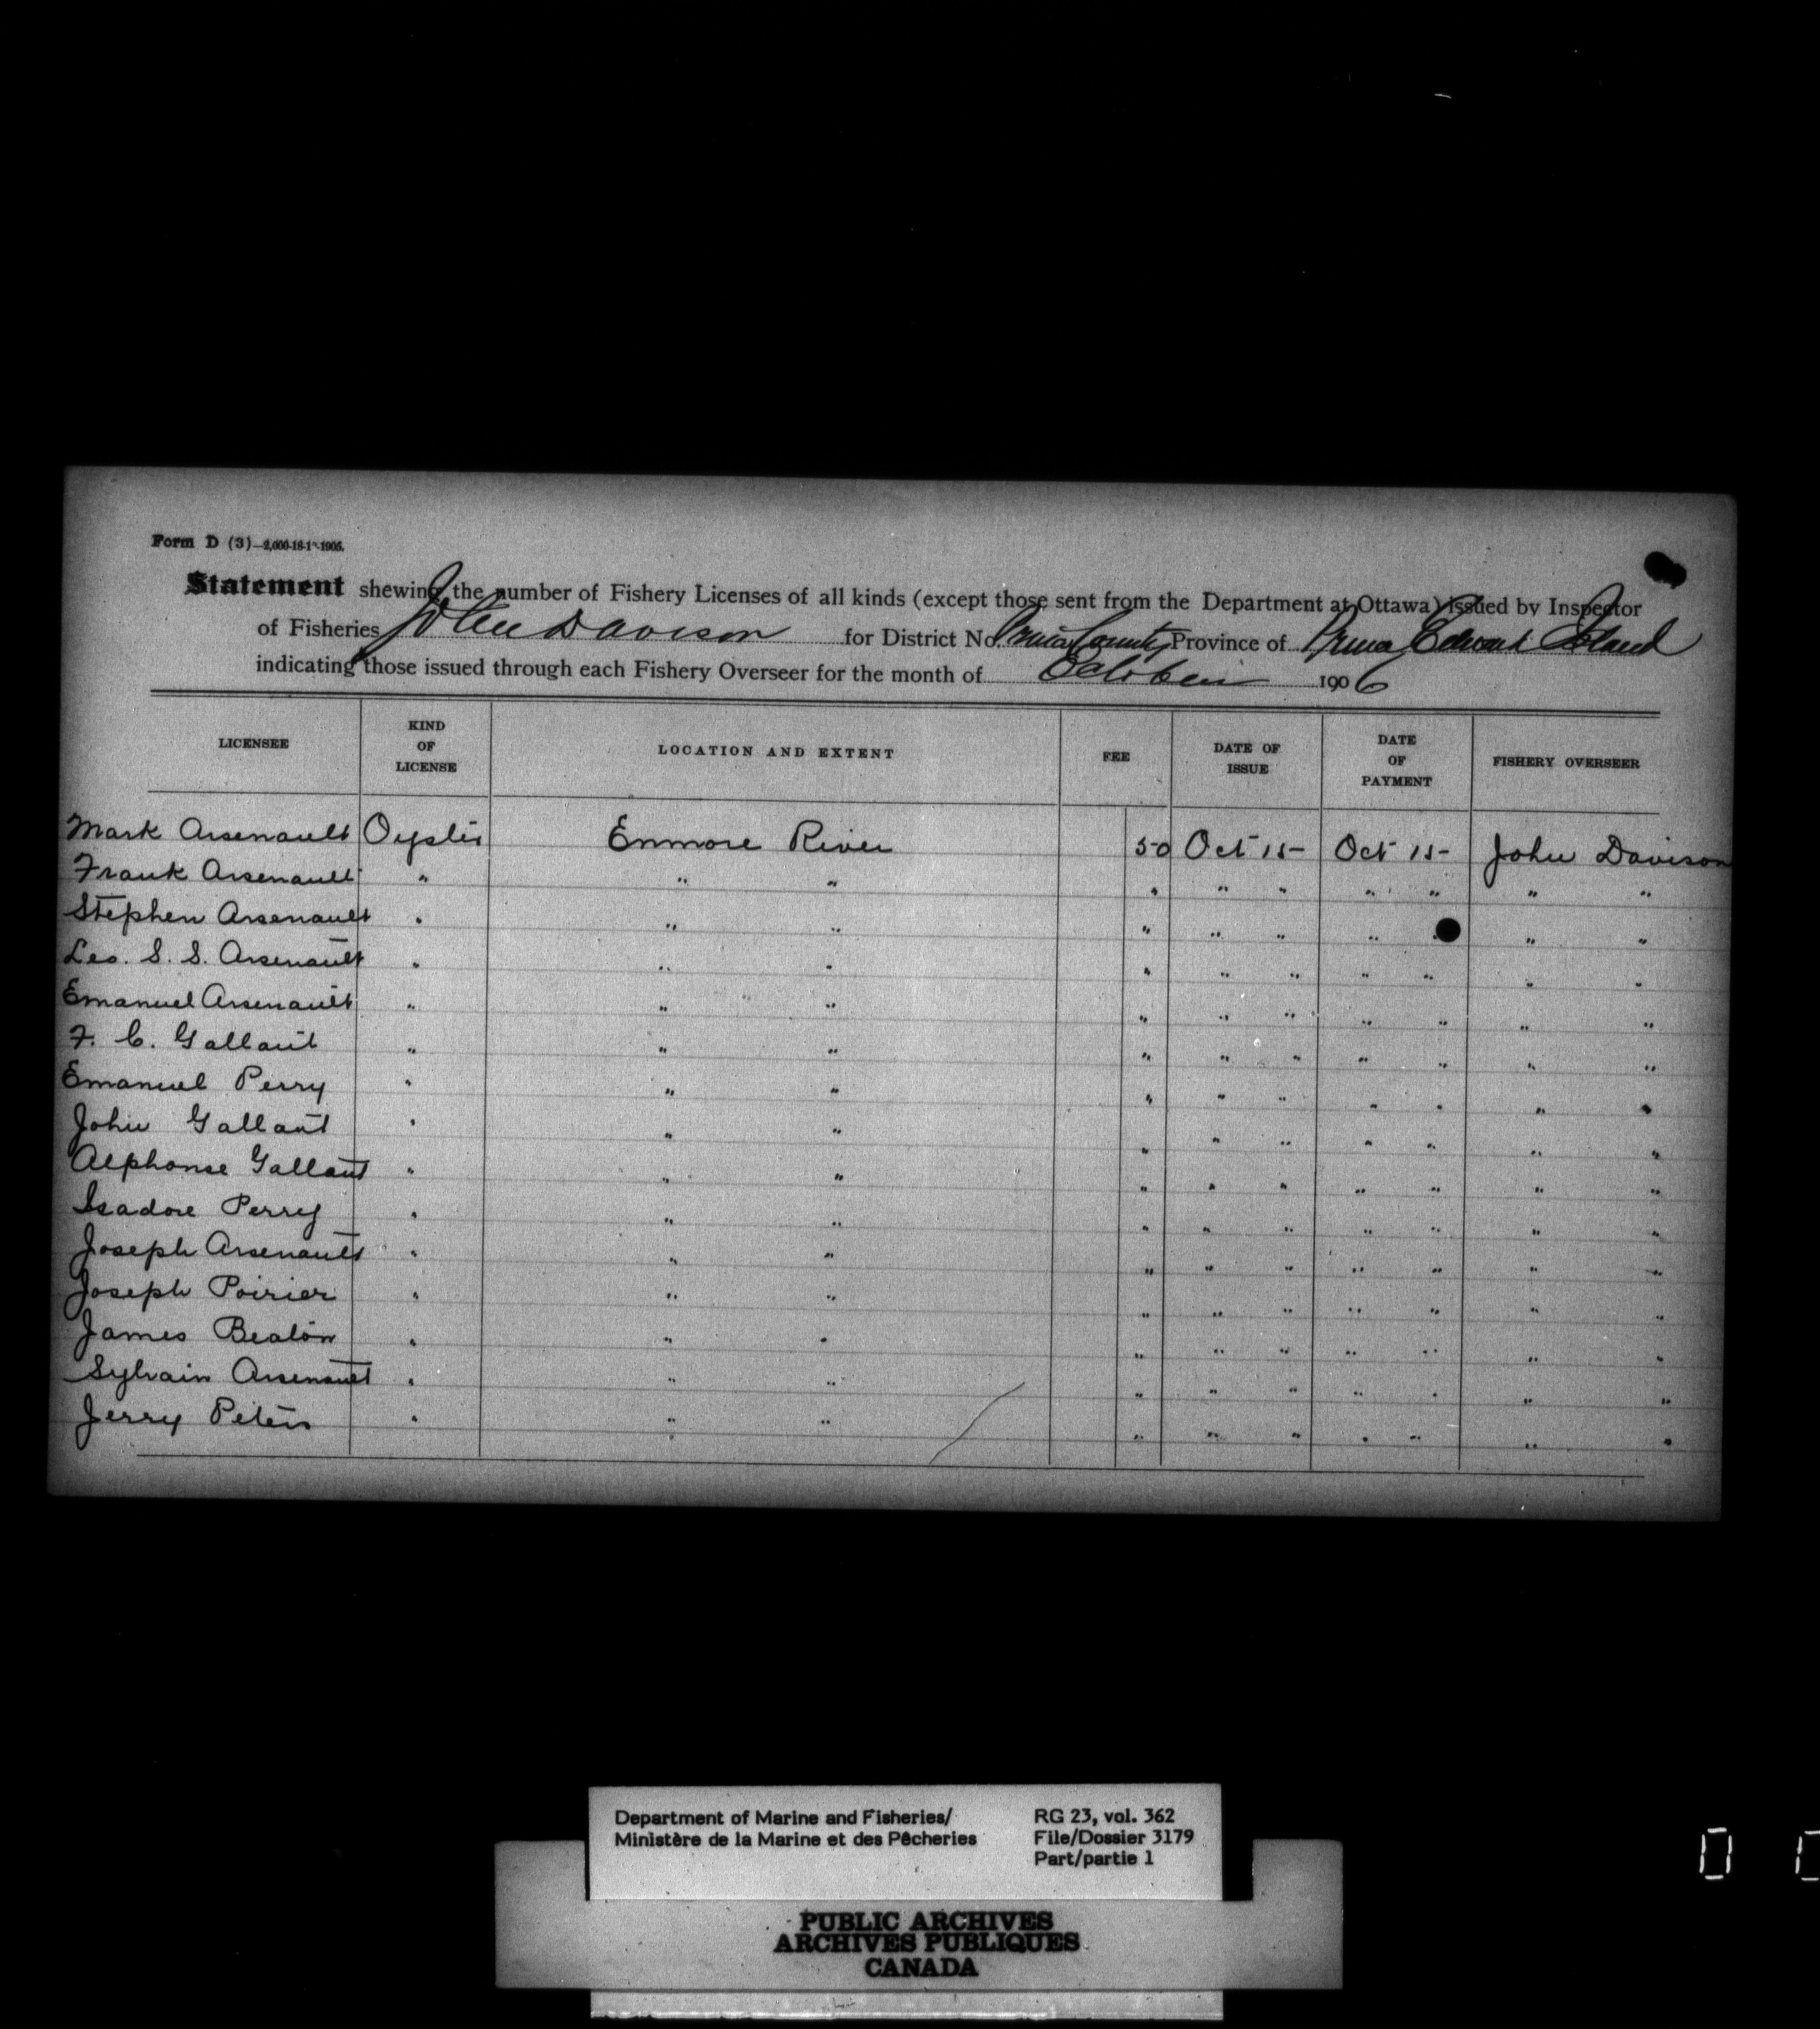 Form D (3)—2,000-18-1-1905.
Statement shewing the number of Fishery Licenses of all kinds (except those sent from the Department at Ottawa) issued by Inspector
of Fisheries John Davison for District No. Prince County Province of Prince Edward Island
indicating those issued through each Fishery Overseer for the month of October 1906
LICENSEE KIND OF LICENSE LOCATION AND EXTENT FEE DATE OF ISSUE DATE OF PAYMENT FISHERY OVERSEER
Mark Arsenault Oyster Enmore River 50 Oct 15 Oct 15 John Davison
Frank Arsenault " " " " " " " " " "
Stephen Arsenault " " " " " " " " " "
Leo. S. S. Arsenault " " " " " " " " " "
Emanuel Arsenault " " " " " " " " " "
F. C. Gallant " " " " " " " " " "
Emanuel Perry " " " " " " " " " "
John Gallant " " " " " " " " " "
Alphonse Gallant " " " " " " " " " "
Isadore Perry " " " " " " " " " "
Joseph Arsenault " " " " " " " " " "
Joseph Poirier " " " " " " " " " "
James Beaton " " " " " " " " " "
Sylvain Arsenault " " " " " " " " " "
Jerry Peters " " " " " " " " " "
Department of Marine and Fisheries/ RG 23, vol. 362
Ministère de la Marine et des Pêcheries File/Dossier 3179
Part/partie 1
PUBLIC ARCHIVES
ARCHIVES PUBLIQUES
CANADA